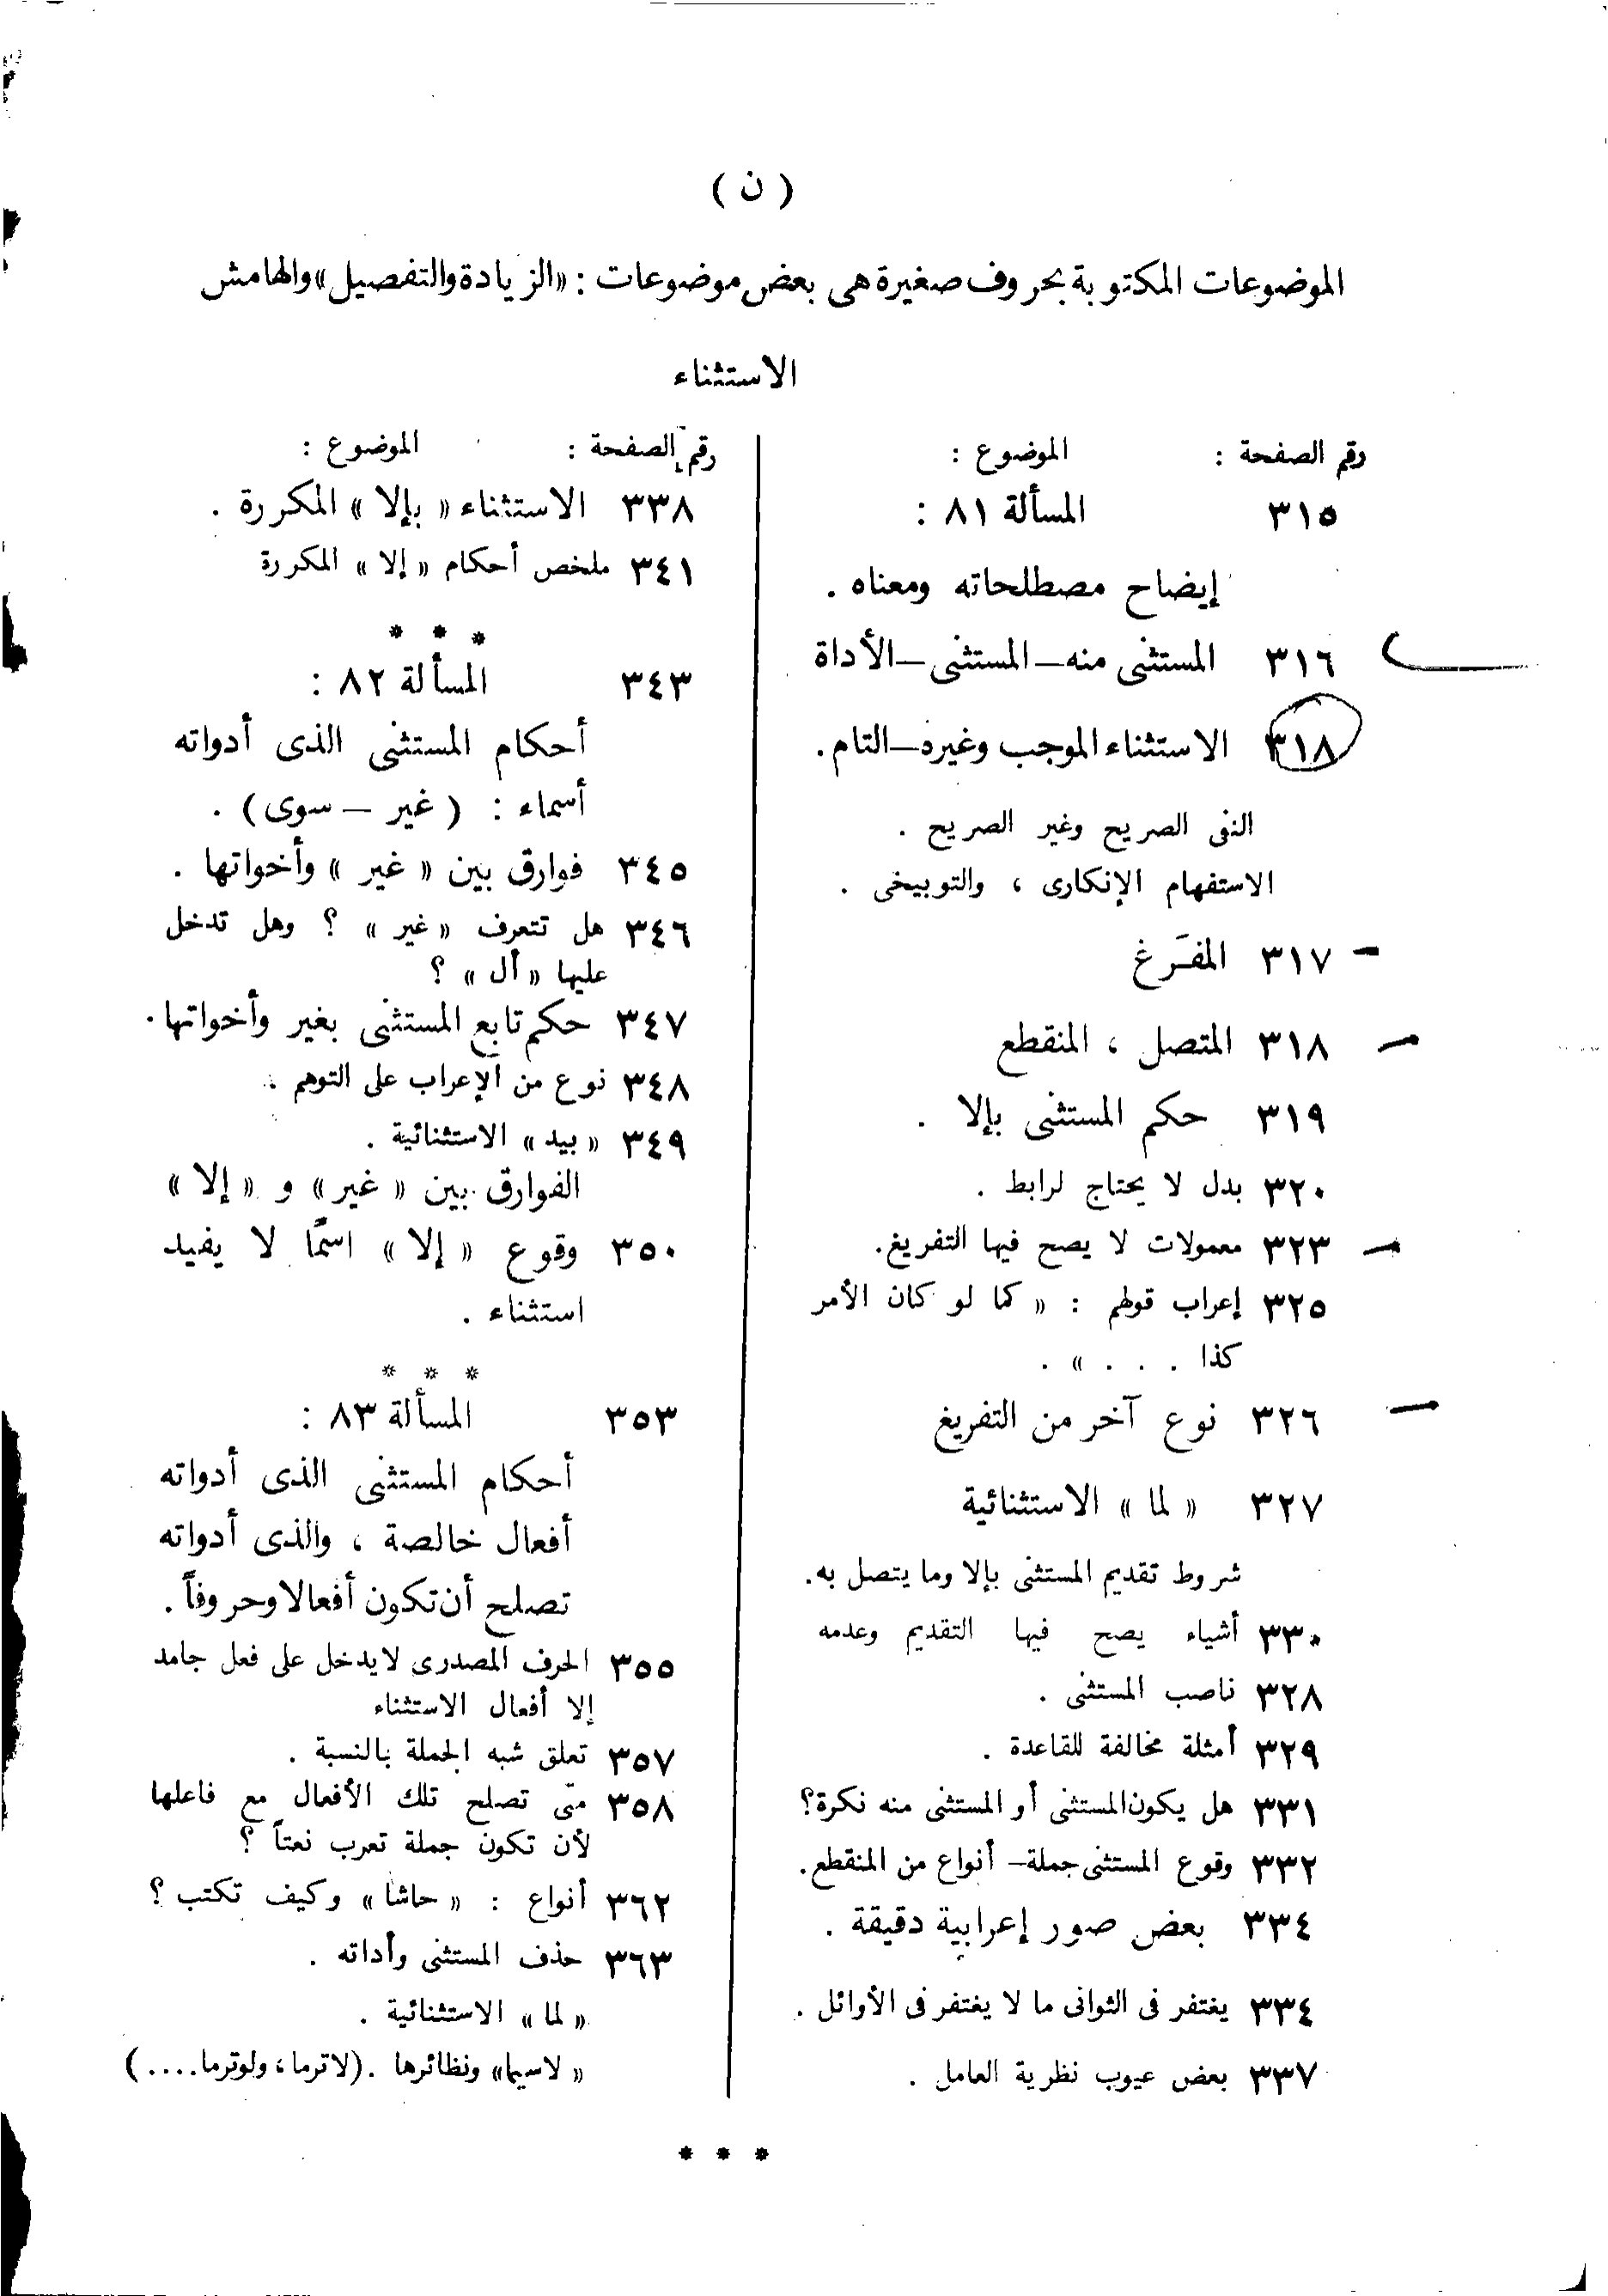 ( ن )
الموضوعات المكتوبة بحروف صغيرة هى بعض موضوعات : «الزيادة والتفصيل» والهامش
الاستثناء
رقم الصفحة : الموضوع :
٣١٥ المسألة ٨١ :
إيضاح مصطلحاته ومعناه .
٣١٦ المستثنى منه – المستثنى – الأداة
٣١٨ الاستثناء الموجب وغيره – التام .
النفى الصريح وغير الصريح .
الاستفهام الإنكارى ، والتوبيخى .
٣١٧ المفَرغ
٣١٨ المتصل ، المنقطع
٣١٩ حكم المستثنى بإلا .
٣٢٠ بدل لا يحتاج لرابط .
٣٢٣ معمولات لا يصح فيها التفريغ .
٣٢٥ إعراب قولهم : « كما لو كان الأمر
كذا . . . » .
٣٢٦ نوع آخر من التفريغ
٣٢٧ « لما » الاستثنائية
شروط تقديم المستثنى بإلا وما يتصل به .
٣٣٠ أشياء يصح فيها التقديم وعدمه
٣٢٨ ناصب المستثنى .
٣٢٩ أمثلة مخالفة للقاعدة .
٣٣١ هل يكون المستثنى أو المستثنى منه نكرة ؟
٣٣٢ وقوع المستثنى جملة – أنواع من المنقطع .
٣٣٤ بعض صور إعرابية دقيقة .
٣٣٤ يغتفر فى الثوانى ما لا يغتفر فى الأوائل .
٣٣٧ بعض عيوب نظرية العامل .
رقم الصفحة : الموضوع :
٣٣٨ الاستثناء « بإلا » المكررة .
٣٤١ ملخص أحكام « إلا » المكررة
* * *
٣٤٣ المسألة ٨٢ :
أحكام المستثنى الذى أدواته
أسماء : ( غير – سوى ) .
٣٤٥ فوارق بين « غير » وأخواتها .
٣٤٦ هل تتعرف « غير » ؟ وهل تدخل
عليها « أل » ؟
٣٤٧ حكم تابع المستثنى بغير وأخواتها .
٣٤٨ نوع من الإعراب على التوهم .
٣٤٩ « بيد » الاستثنائية .
الفوارق بين « غير » و « إلا »
٣٥٠ وقوع « إلا » اسمًا لا يفيد
استثناء .
* * *
٣٥٣ المسألة ٨٣ :
أحكام المستثنى الذى أدواته
أفعال خالصة ، والذى أدواته
تصلح أن تكون أفعالا وحروفاً .
٣٥٥ الحرف المصدرى لا يدخل على فعل جامد
إلا أفعال الاستثناء
٣٥٧ تعلق شبه الجملة بالنسبة .
٣٥٨ متى تصلح تلك الأفعال مع فاعلها
لأن تكون جملة تعرب نعتاً ؟
٣٦٢ أنواع : « حاشا » وكيف تكتب ؟
٣٦٣ حذف المستثنى وأداته .
« لما » الاستثنائية .
« لاسيما » ونظائرها . (لا ترما ، ولو ترما ....)
* * *